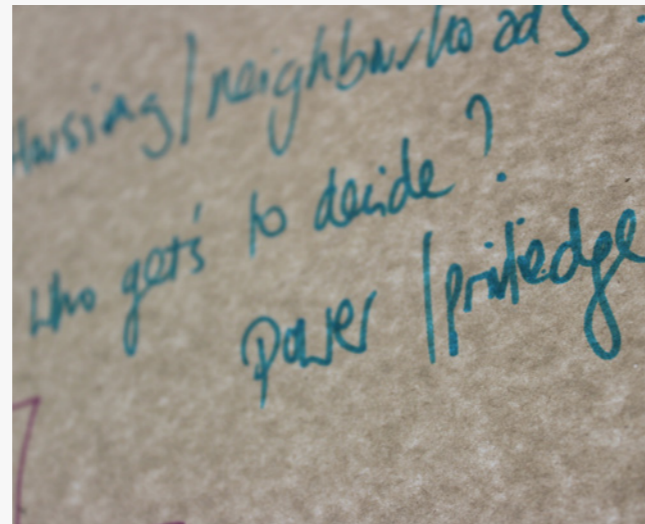 Housing/neighbourhoods
who get's to decide?
Power/priviledge